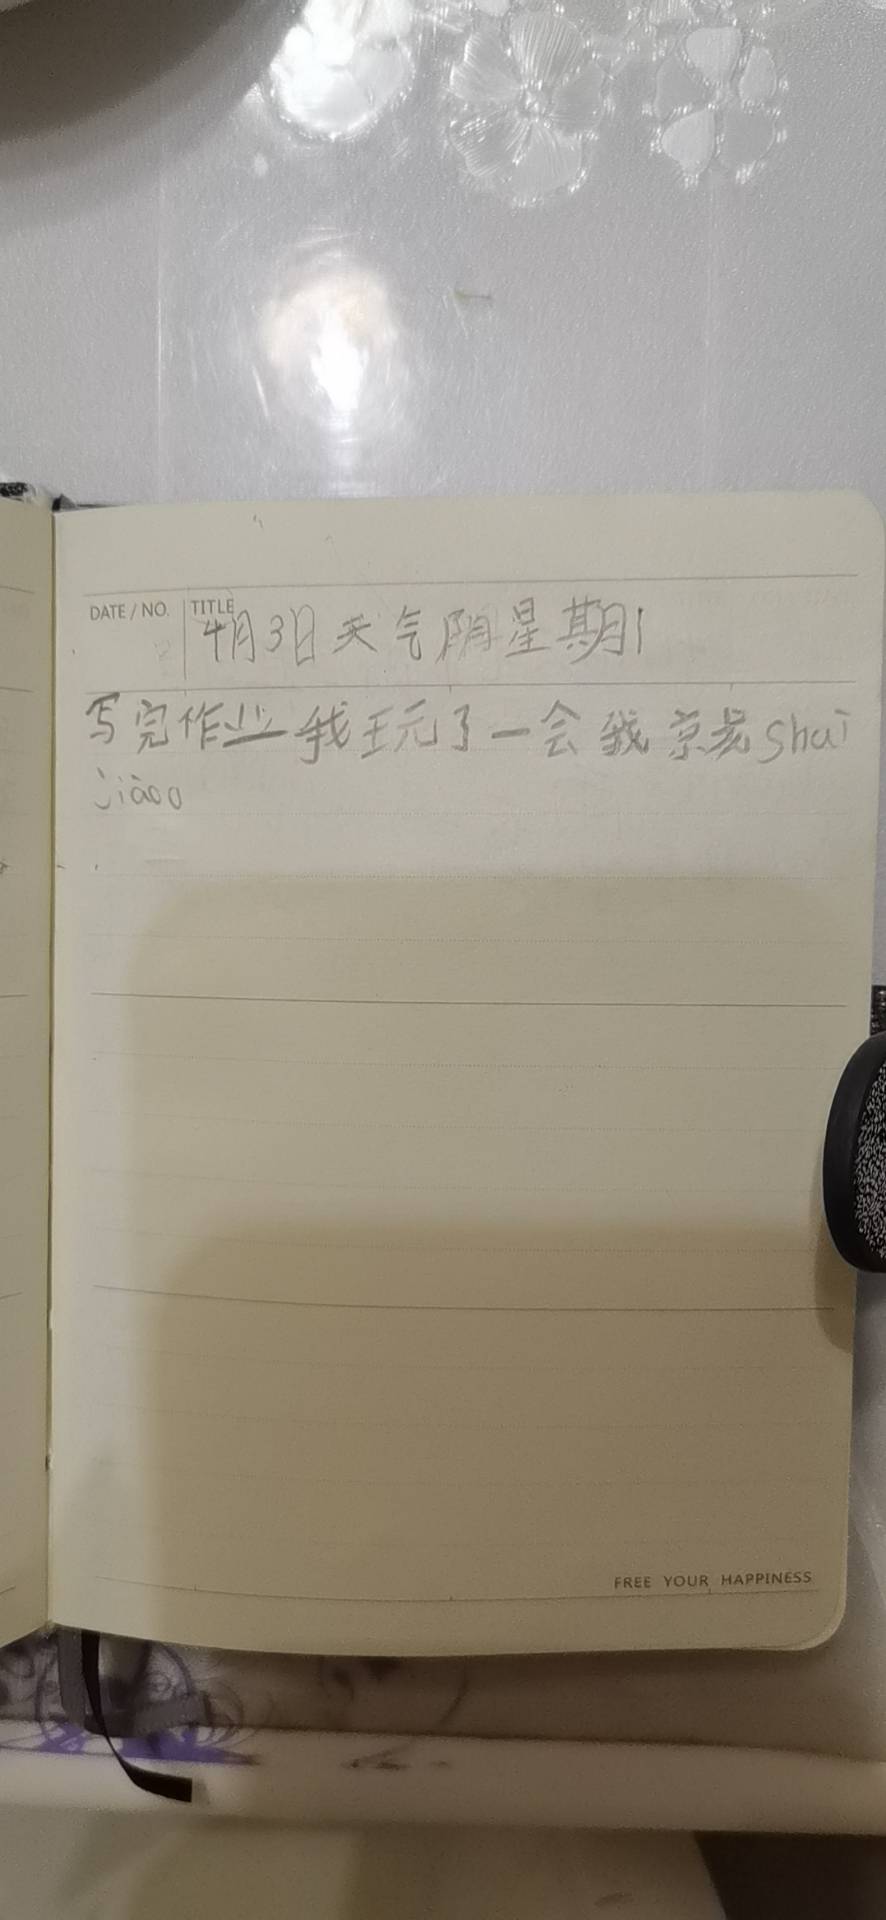 DATE / NO. TITLE
4月3日天气阴星期1
写完作业我玩了一会我就shui
jiào。
FREE YOUR HAPPINESS